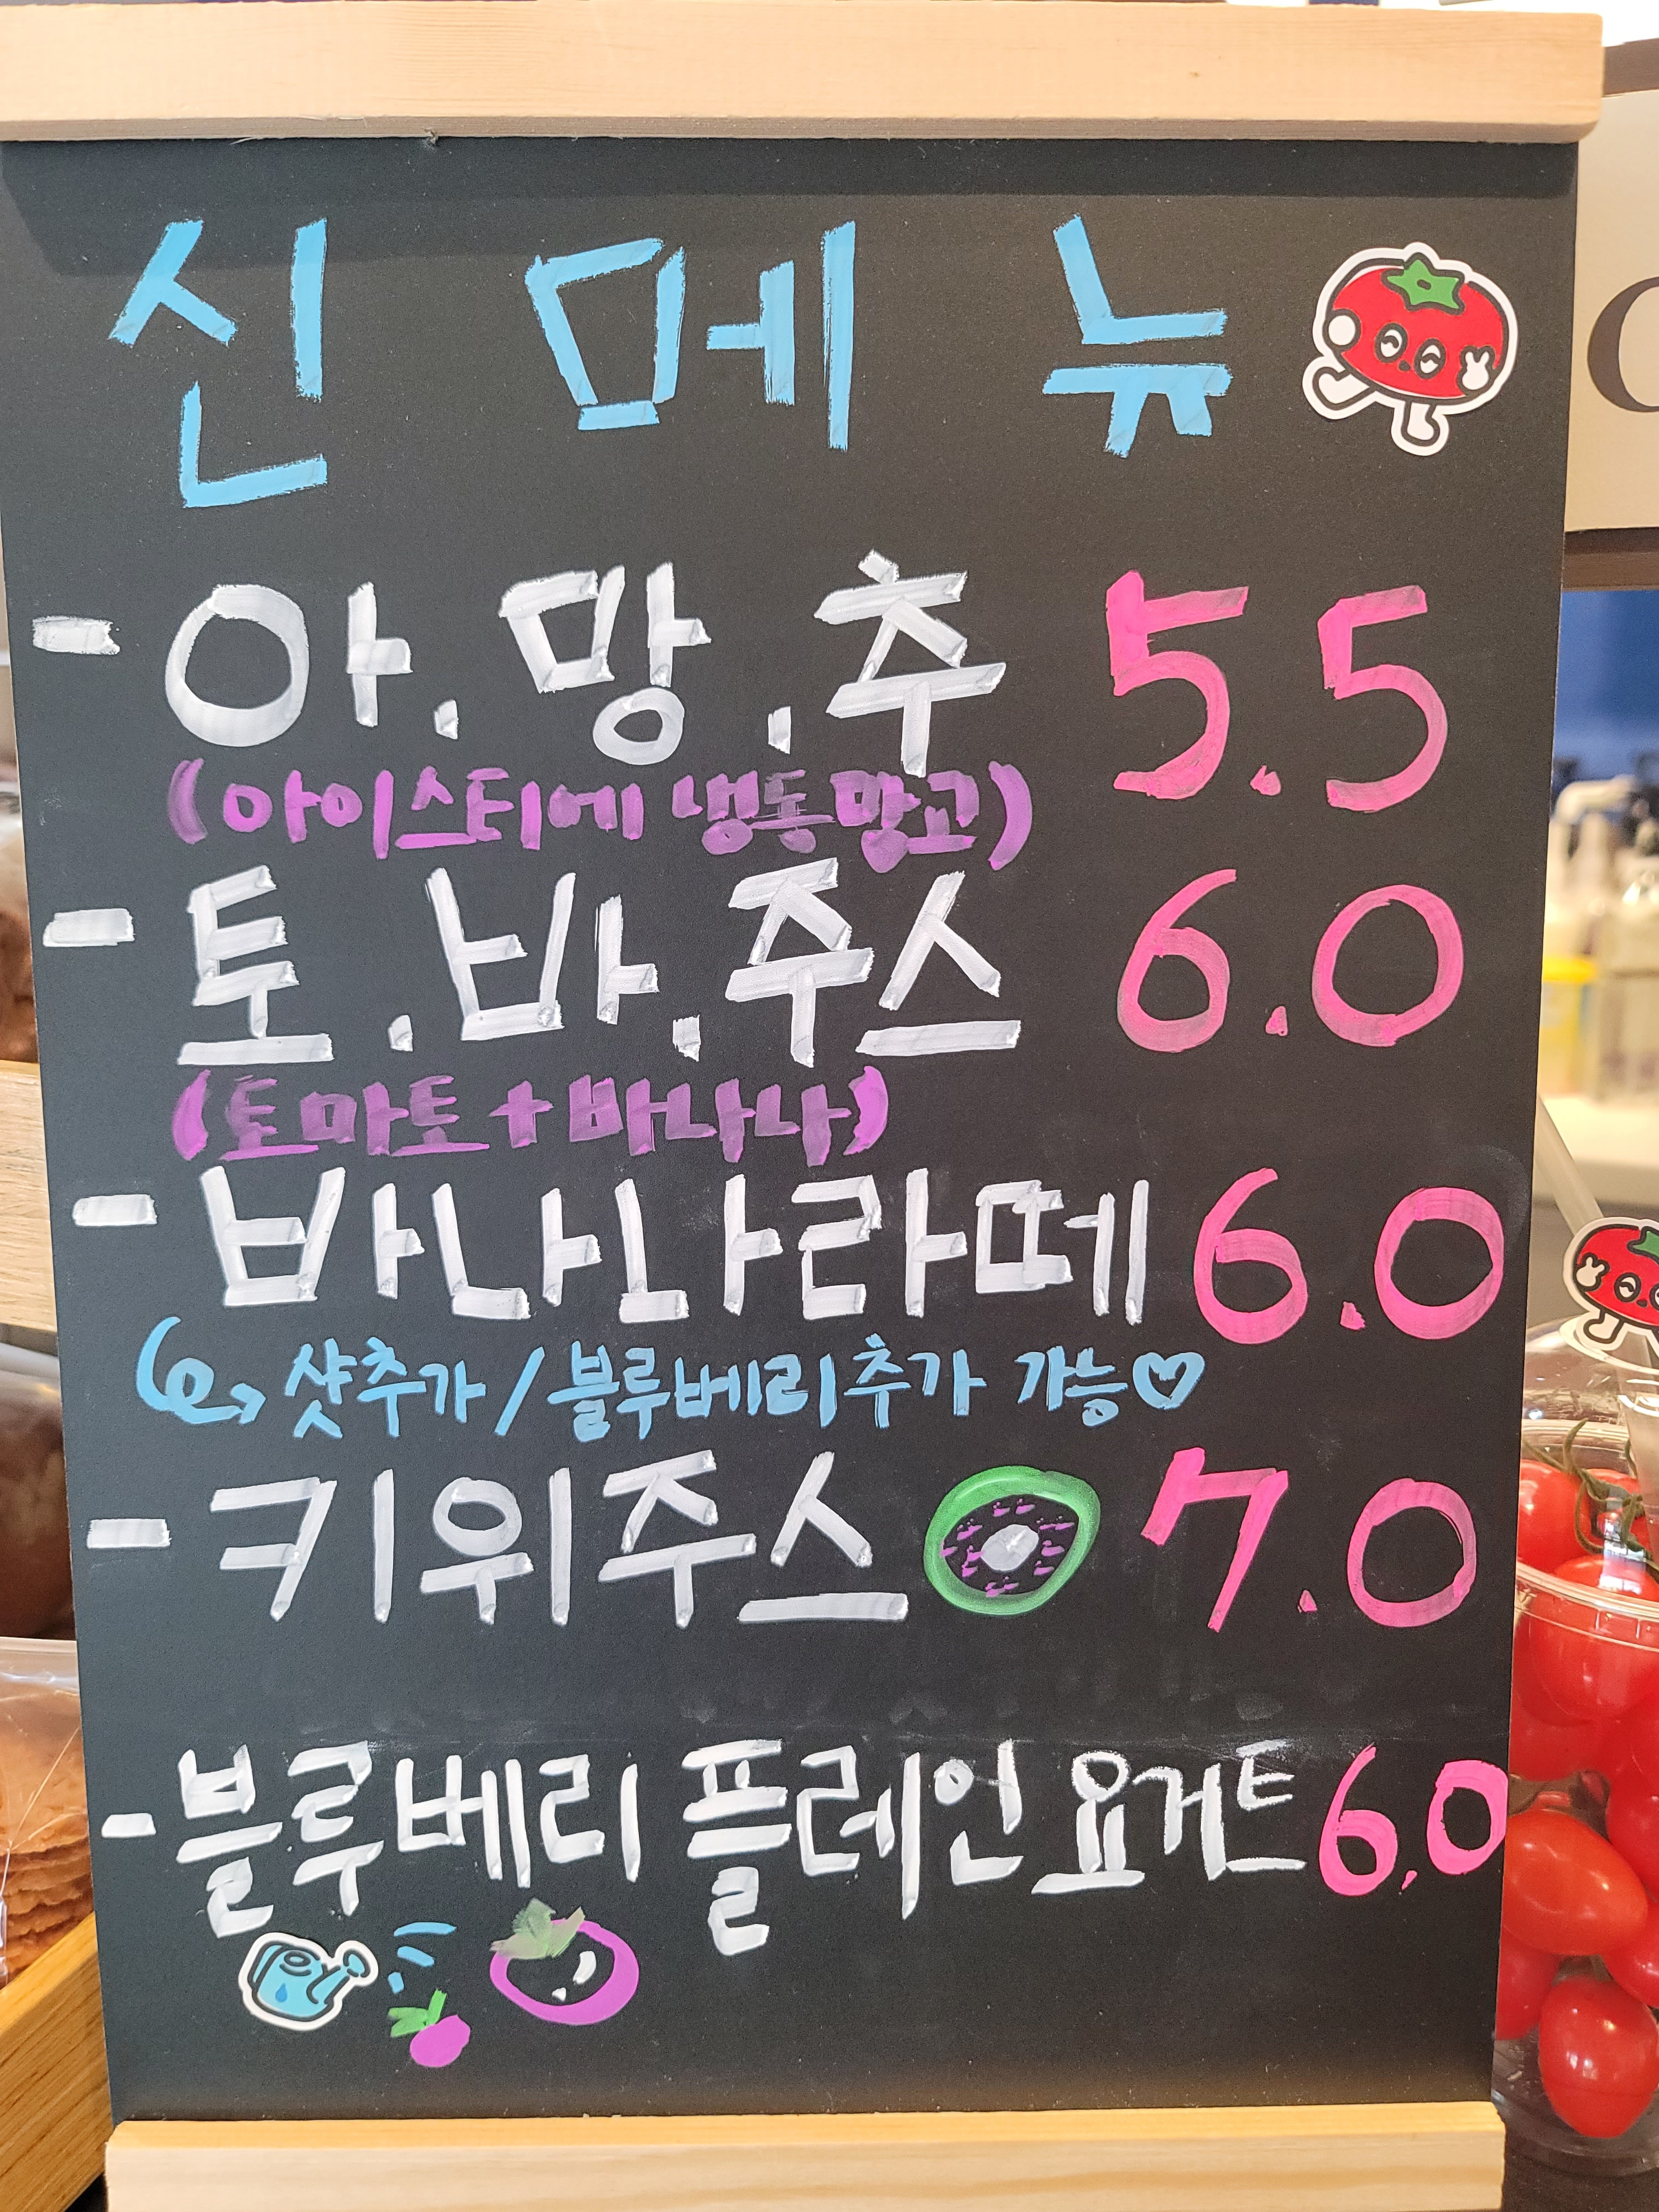 신 메 뉴
- 아.망.추 5.5
(아이스티에 냉동망고)
- 토.바.주스 6.0
(토마토+바나나)
- 바나나라떼 6.0
샷추가/블루베리추가 가능♡
- 키위주스 7.0
- 블루베리 플레인요거트 6.0